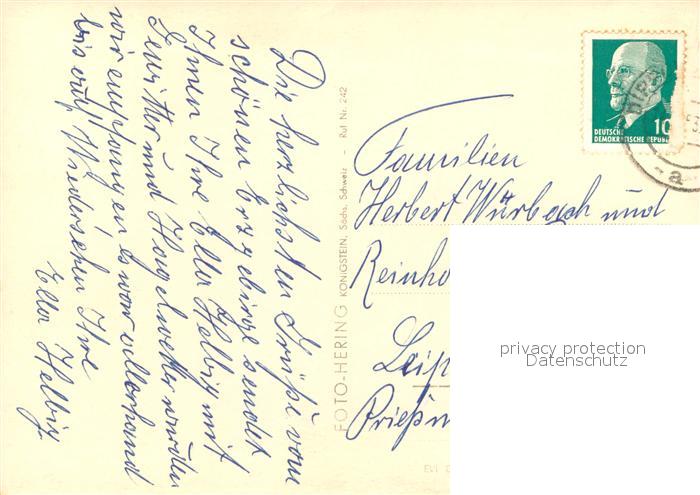 Die herzlichsten Grüße vom
schönen Erzgebirge sendet
Ihnen Ihre Ella Helbig mit
und Hagelwetter wurden
wir empfangen es war allerhand
bis auf Wiedersehen Ihre
Ella Helbig
FOTO-HERING KÖNIGSTEIN, Sächs. Schweiz - Ruf Nr. 242
DEUTSCHE
DEMOKRATISCHE REPUBLIK
10
a
Familien
Herbert Würbach und
Reinho
Leip
Prießn
privacy protection
Datenschutz